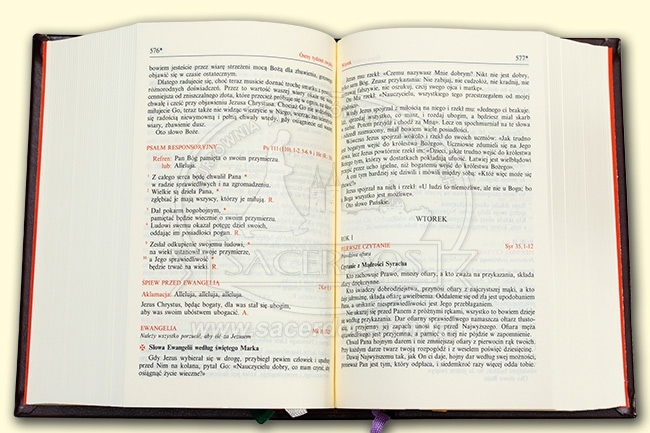 576*
Ósmy tydzień zwykły
bowiem jesteście przez wiarę strzeżeni mocą Bożą dla zbawienia, gotowego
objawić się w czasie ostatecznym.
Dlatego radujecie się, choć teraz musicie doznać trochę smutku z powodu
różnorodnych doświadczeń. Przez to wartość waszej wiary okaże się
cenniejsza od zniszczalnego złota, które przecież próbuje się w ogniu, na
chwałę i cześć przy objawieniu Jezusa Chrystusa. Chociaż Go nie widzieliście,
miłujecie Go, teraz także nie widząc wierzycie w Niego, wierząc zaś
się radością niewymowną i pełną chwały wtedy, gdy osiągniecie cel waszej
wiary, zbawienie dusz.
Oto słowo Boże.
PSALM RESPONSORYJNY
Ps 111 (110), 1-2. 5-6. 9 i
Refren: Pan Bóg pamięta o swoim przymierzu.
lub: Alleluja.
Z całego serca będę chwalił Pana *
w radzie sprawiedliwych i na zgromadzeniu.
Wielkie są dzieła Pana, *
zgłębiać je mają wszyscy, którzy je miłują. R.
Dał pokarm bogobojnym, *
pamiętać będzie wiecznie o swoim przymierzu.
Ludowi swemu okazał potęgę dzieł swoich,
oddając im posiadłości pogan. R.
Zesłał odkupienie swojemu ludowi, *
na wieki ustanowił swoje przymierze,
a Jego sprawiedliwość *
będzie trwać na wieki. R.
ŚPIEW PRZED EWANGELIĄ
Aklamacja: Alleluja, alleluja, alleluja.
Jezus Chrystus, będąc bogaty, dla was stał się ubogim,
aby was swoim ubóstwem ubogacić. A.
EWANGELIA
Należy wszystko porzucić, aby iść za Jezusem
✠ Słowa Ewangelii według świętego Marka
Gdy Jezus wybierał się w drogę, przybiegł pewien człowiek i upadłszy
przed Nim na kolana, pytał Go: «Nauczycielu dobry, co mam czynić, aby
osiągnąć życie wieczne?»
Wtorek
577*
Jezus mu rzekł: «Czemu nazywasz Mnie dobrym? Nikt nie jest dobry,
tylko sam Bóg. Znasz przykazania: Nie zabijaj, nie cudzołóż, nie kradnij, nie
zeznawaj fałszywie, nie oszukuj, czcij swego ojca i matkę».
On Mu rzekł: «Nauczycielu, wszystkiego tego przestrzegałem od mojej
młodości».
Wtedy Jezus spojrzał z miłością na niego i rzekł mu: «Jednego ci brakuje.
Idź, sprzedaj wszystko, co masz, i rozdaj ubogim, a będziesz miał skarb
w niebie. Potem przyjdź i chodź za Mną». Lecz on spochmurniał na te słowa
i odszedł zasmucony, miał bowiem wiele posiadłości.
Wówczas Jezus spojrzał wokoło i rzekł do swoich uczniów: «Jak trudno
jest bogatym wejść do królestwa Bożego». Uczniowie zdumieli się na Jego
słowa, lecz Jezus powtórnie rzekł im: «Dzieci, jakże trudno wejść do królestwa
Bożego tym, którzy w dostatkach pokładają ufność. Łatwiej jest wielbłądowi
przejść przez ucho igielne, niż bogatemu wejść do królestwa Bożego».
A oni tym bardziej się dziwili i mówili między sobą: «Któż więc może się
zbawić?»
Jezus spojrzał na nich i rzekł: «U ludzi to niemożliwe, ale nie u Boga; bo
u Boga wszystko jest możliwe».
Oto słowo Pańskie.
WTOREK
ROK I
PIERWSZE CZYTANIE
Syr 35, 1-12
Prawdziwa ofiara
Czytanie z Mądrości Syracha
Kto zachowuje Prawo, mnoży ofiary, a kto zważa na przykazania, składa
dary dziękczynne.
Kto świadczy dobrodziejstwa, przynosi ofiary z najczystszej mąki, a kto
daje jałmużnę, składa ofiarę uwielbienia. Oddalenie się od zła jest upodobaniem
Pana, a unikanie niesprawiedliwości jest Jego przebłaganiem.
Nie ukazuj się przed Panem z próżnymi rękami, wszystko to bowiem dzieje
się według przykazania. Dar ofiarny sprawiedliwego namaszcza ołtarz tłustością,
a przyjemny jej zapach unosi się przed Najwyższego. Ofiara męża
sprawiedliwego jest przyjemna, a pamięć o niej nie pójdzie w zapomnienie.
Chwal Pana hojnym darem i nie zmniejszaj ofiary z pierwocin rąk twoich.
Przy każdym darze twarz twoją rozpogódź i z weselem poświęć dziesięcinę.
Dawaj Najwyższemu tak, jak On ci daje, hojny dar według swej możności,
ponieważ Pan jest tym, który odpłaca, i siedemkroć razy więcej odda tobie.
SACERDOS